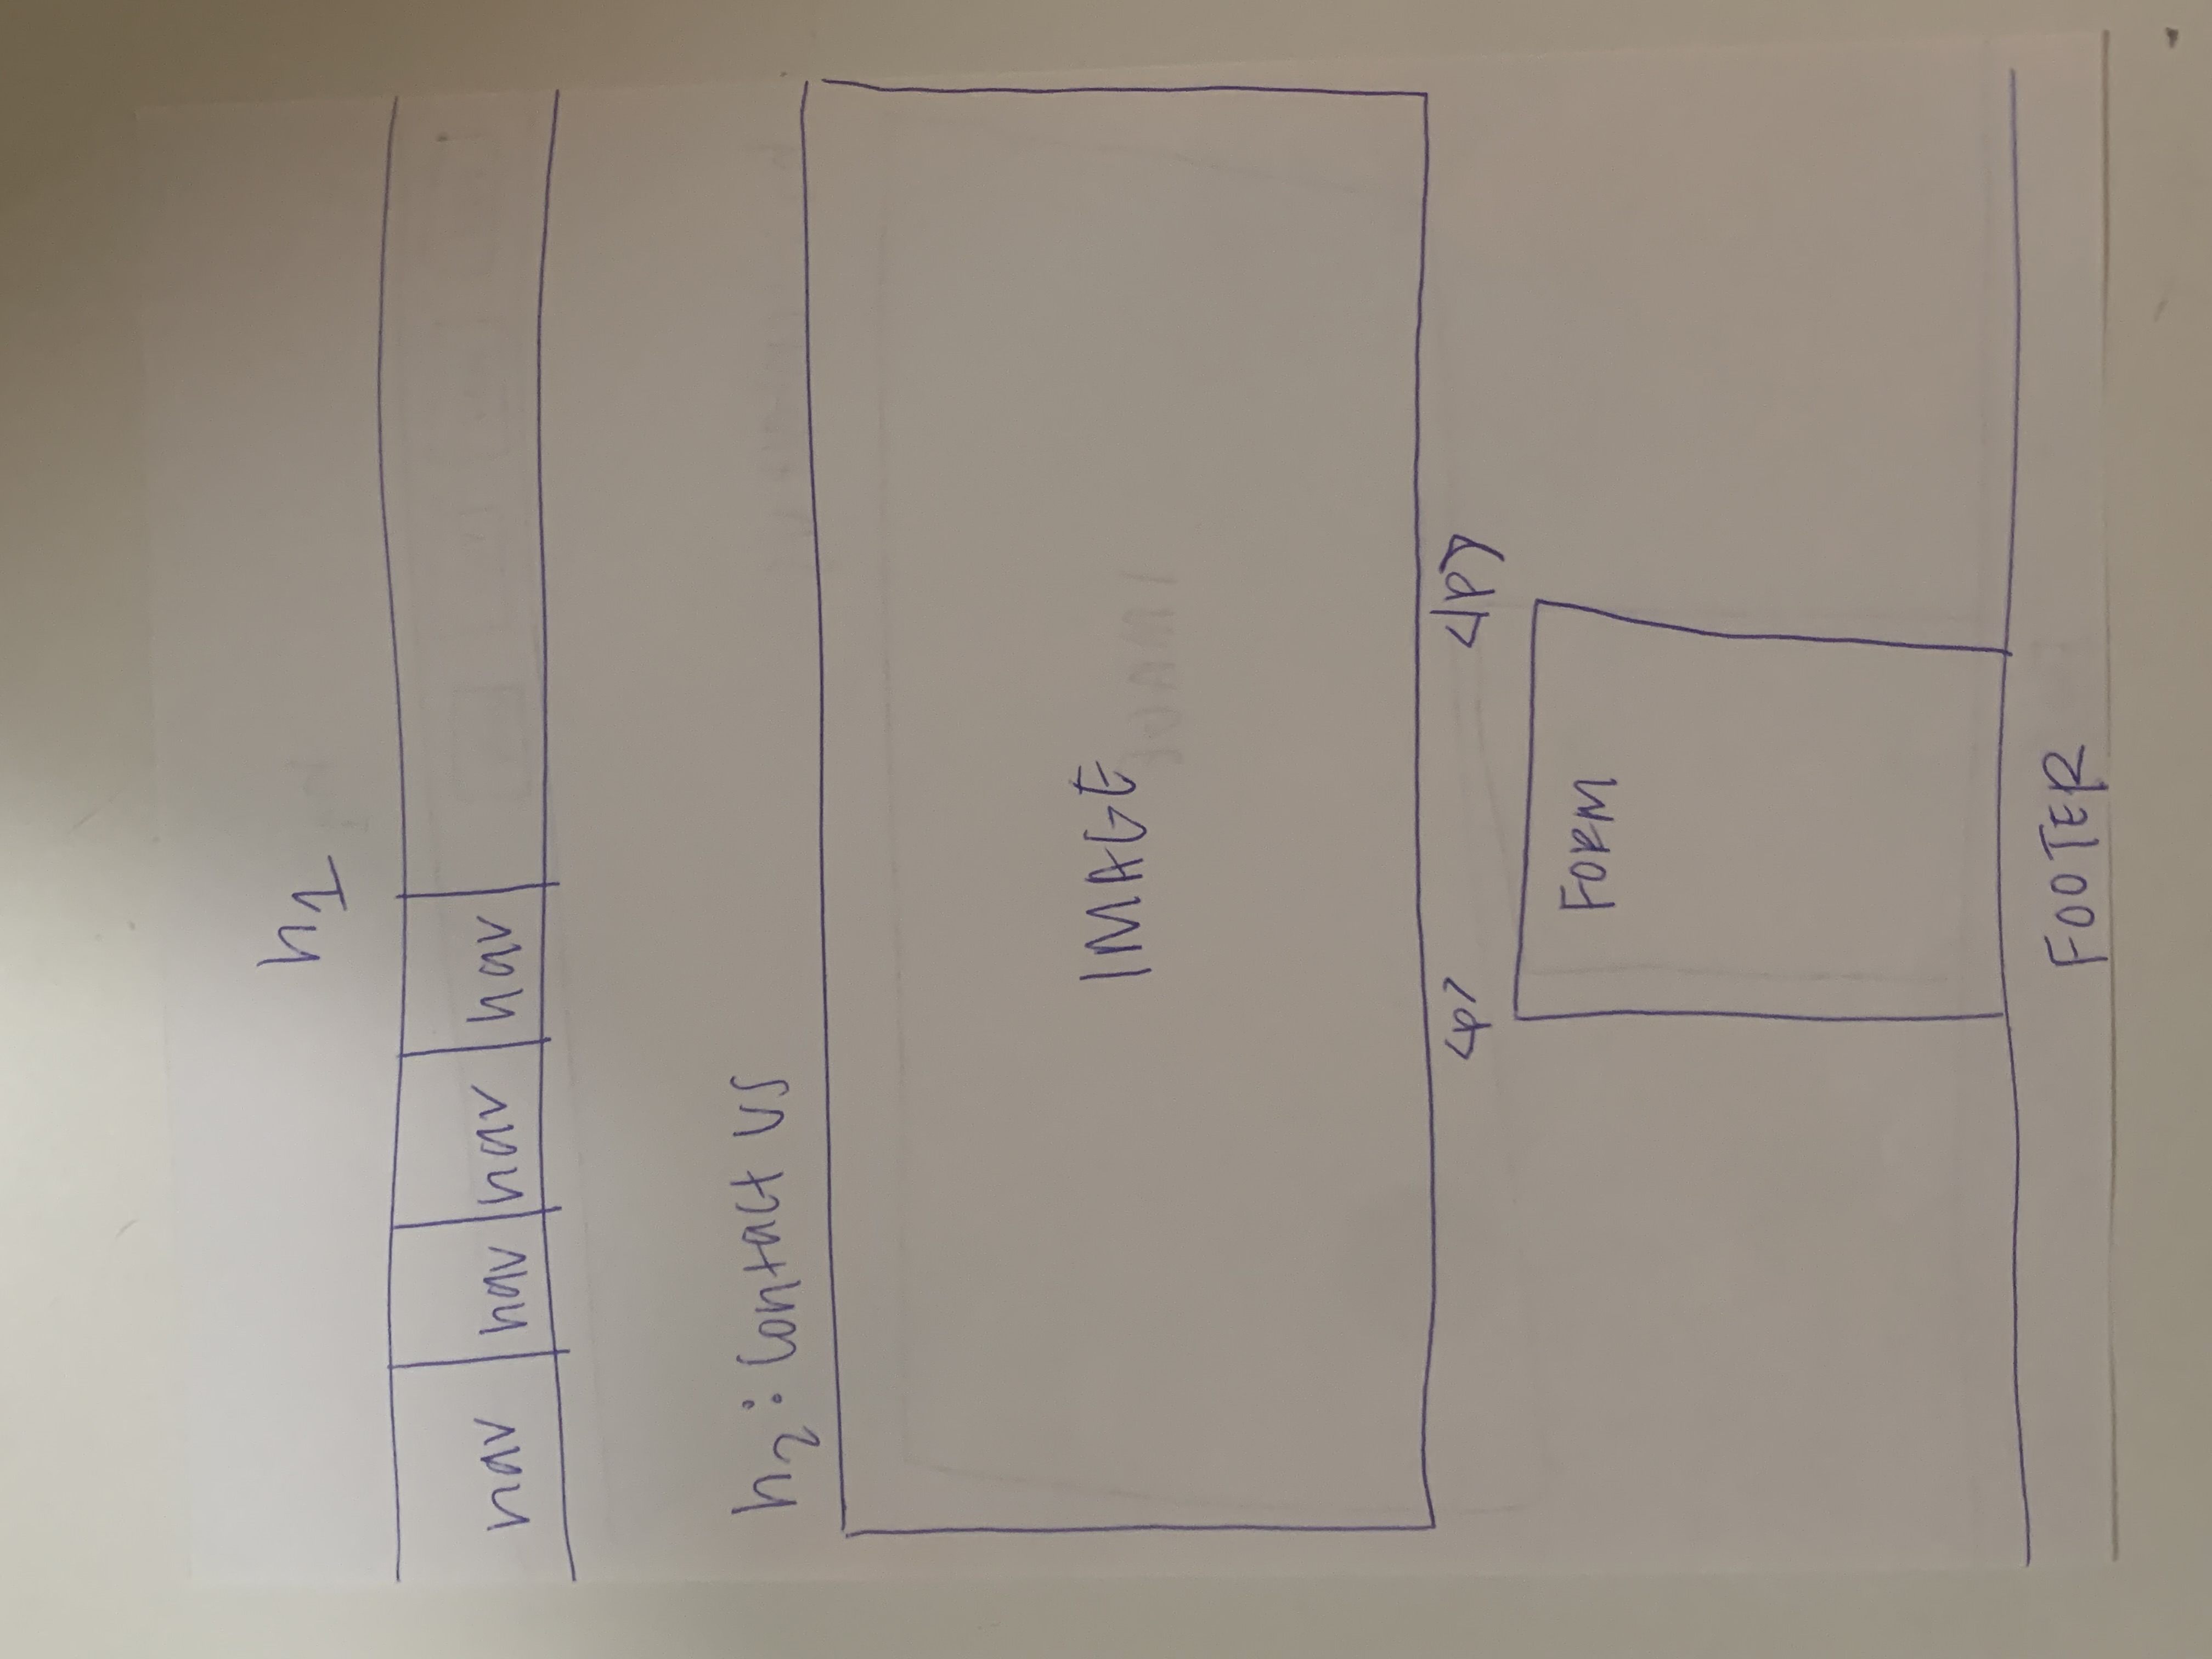 h1
nav nav nav nav
h2: Contact US
IMAGE
<p> </p>
FORM
FOOTER